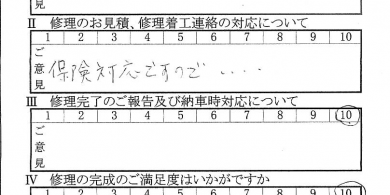 II 修理のお見積、修理着工連絡の対応について
1 2 3 4 5 6 7 8 9 10
ご意見
保険対応ですので....
III 修理完了のご報告及び納車時対応について
1 2 3 4 5 6 7 8 9 10
ご意見
IV 修理の完成のご満足度はいかがですか
1 2 3 4 5 6 7 8 9 10